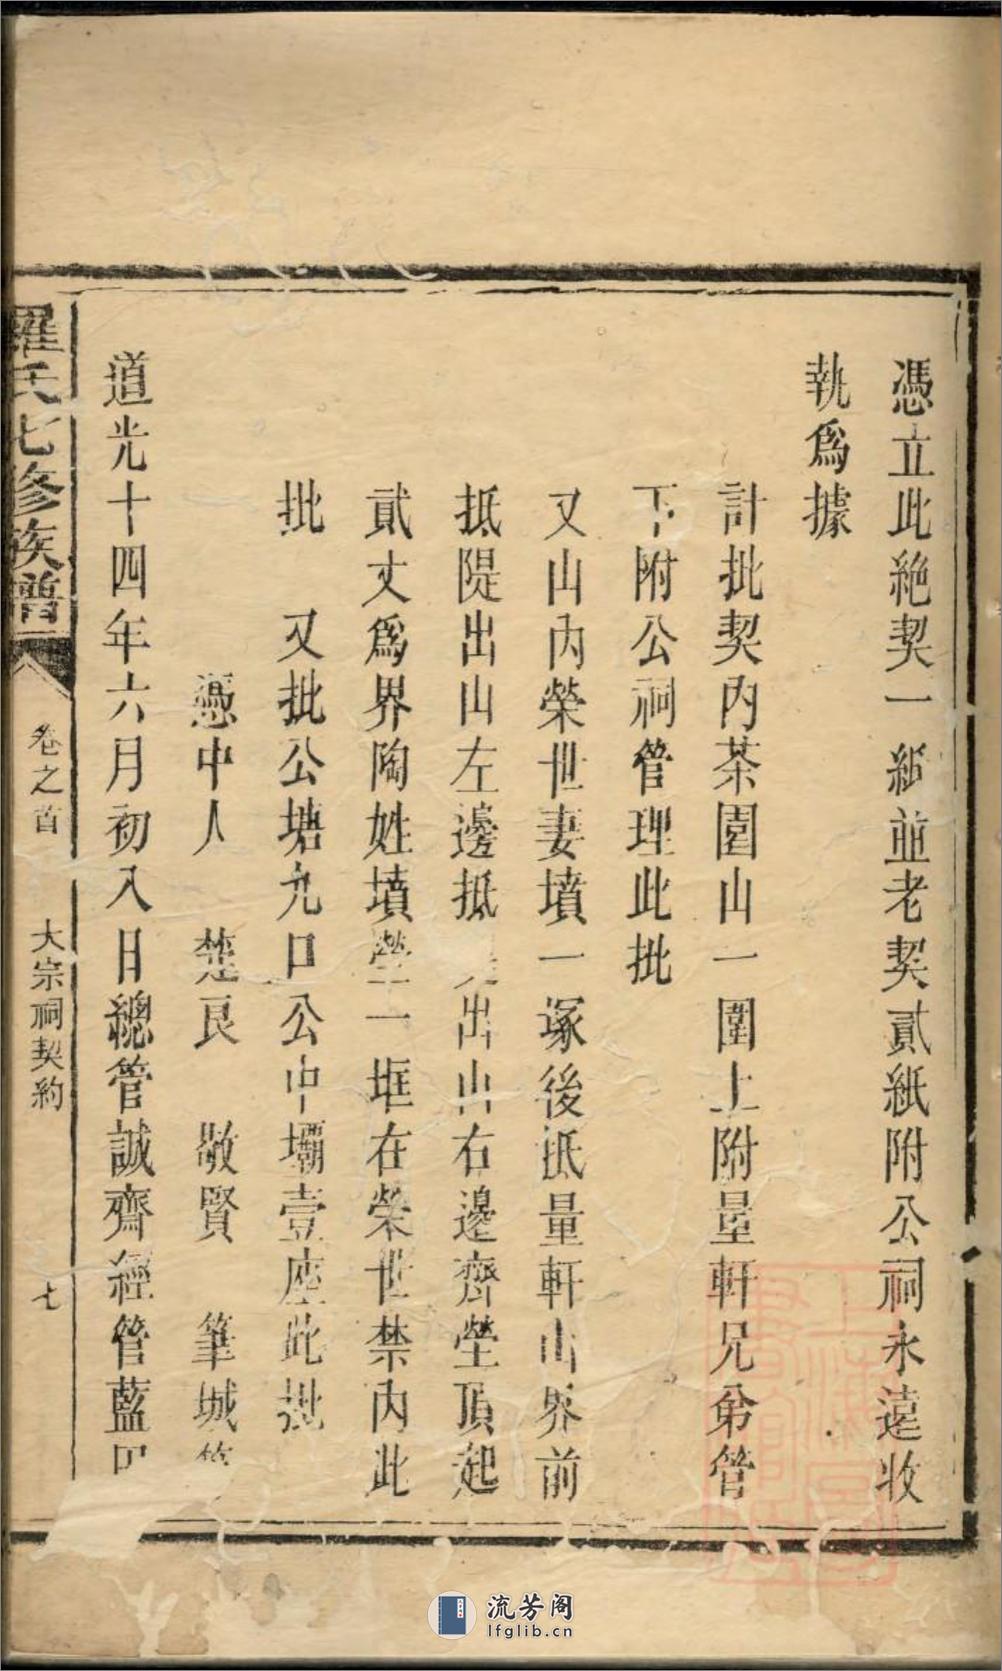 憑立此絶契一紙並老契貳紙附公祠永遠收
執爲據
計批契内茶園山一圍上附量軒兄弟管
下附公祠管理此批
又山内榮世妻墳一塚後抵量軒山界前
抵隄出山左邊抵出山右邊齊塋頂起
貳丈爲界陶姓墳塋一框在榮世禁内此
批　又批公塘九口公中壩壹座此批
憑中人　楚良　敬賢　筆城
道光十四年六月初八日總管誠齊經管藍田
羅氏七修族譜　卷之首　大宗祠契約　七
流芳阁
lfglib.cn